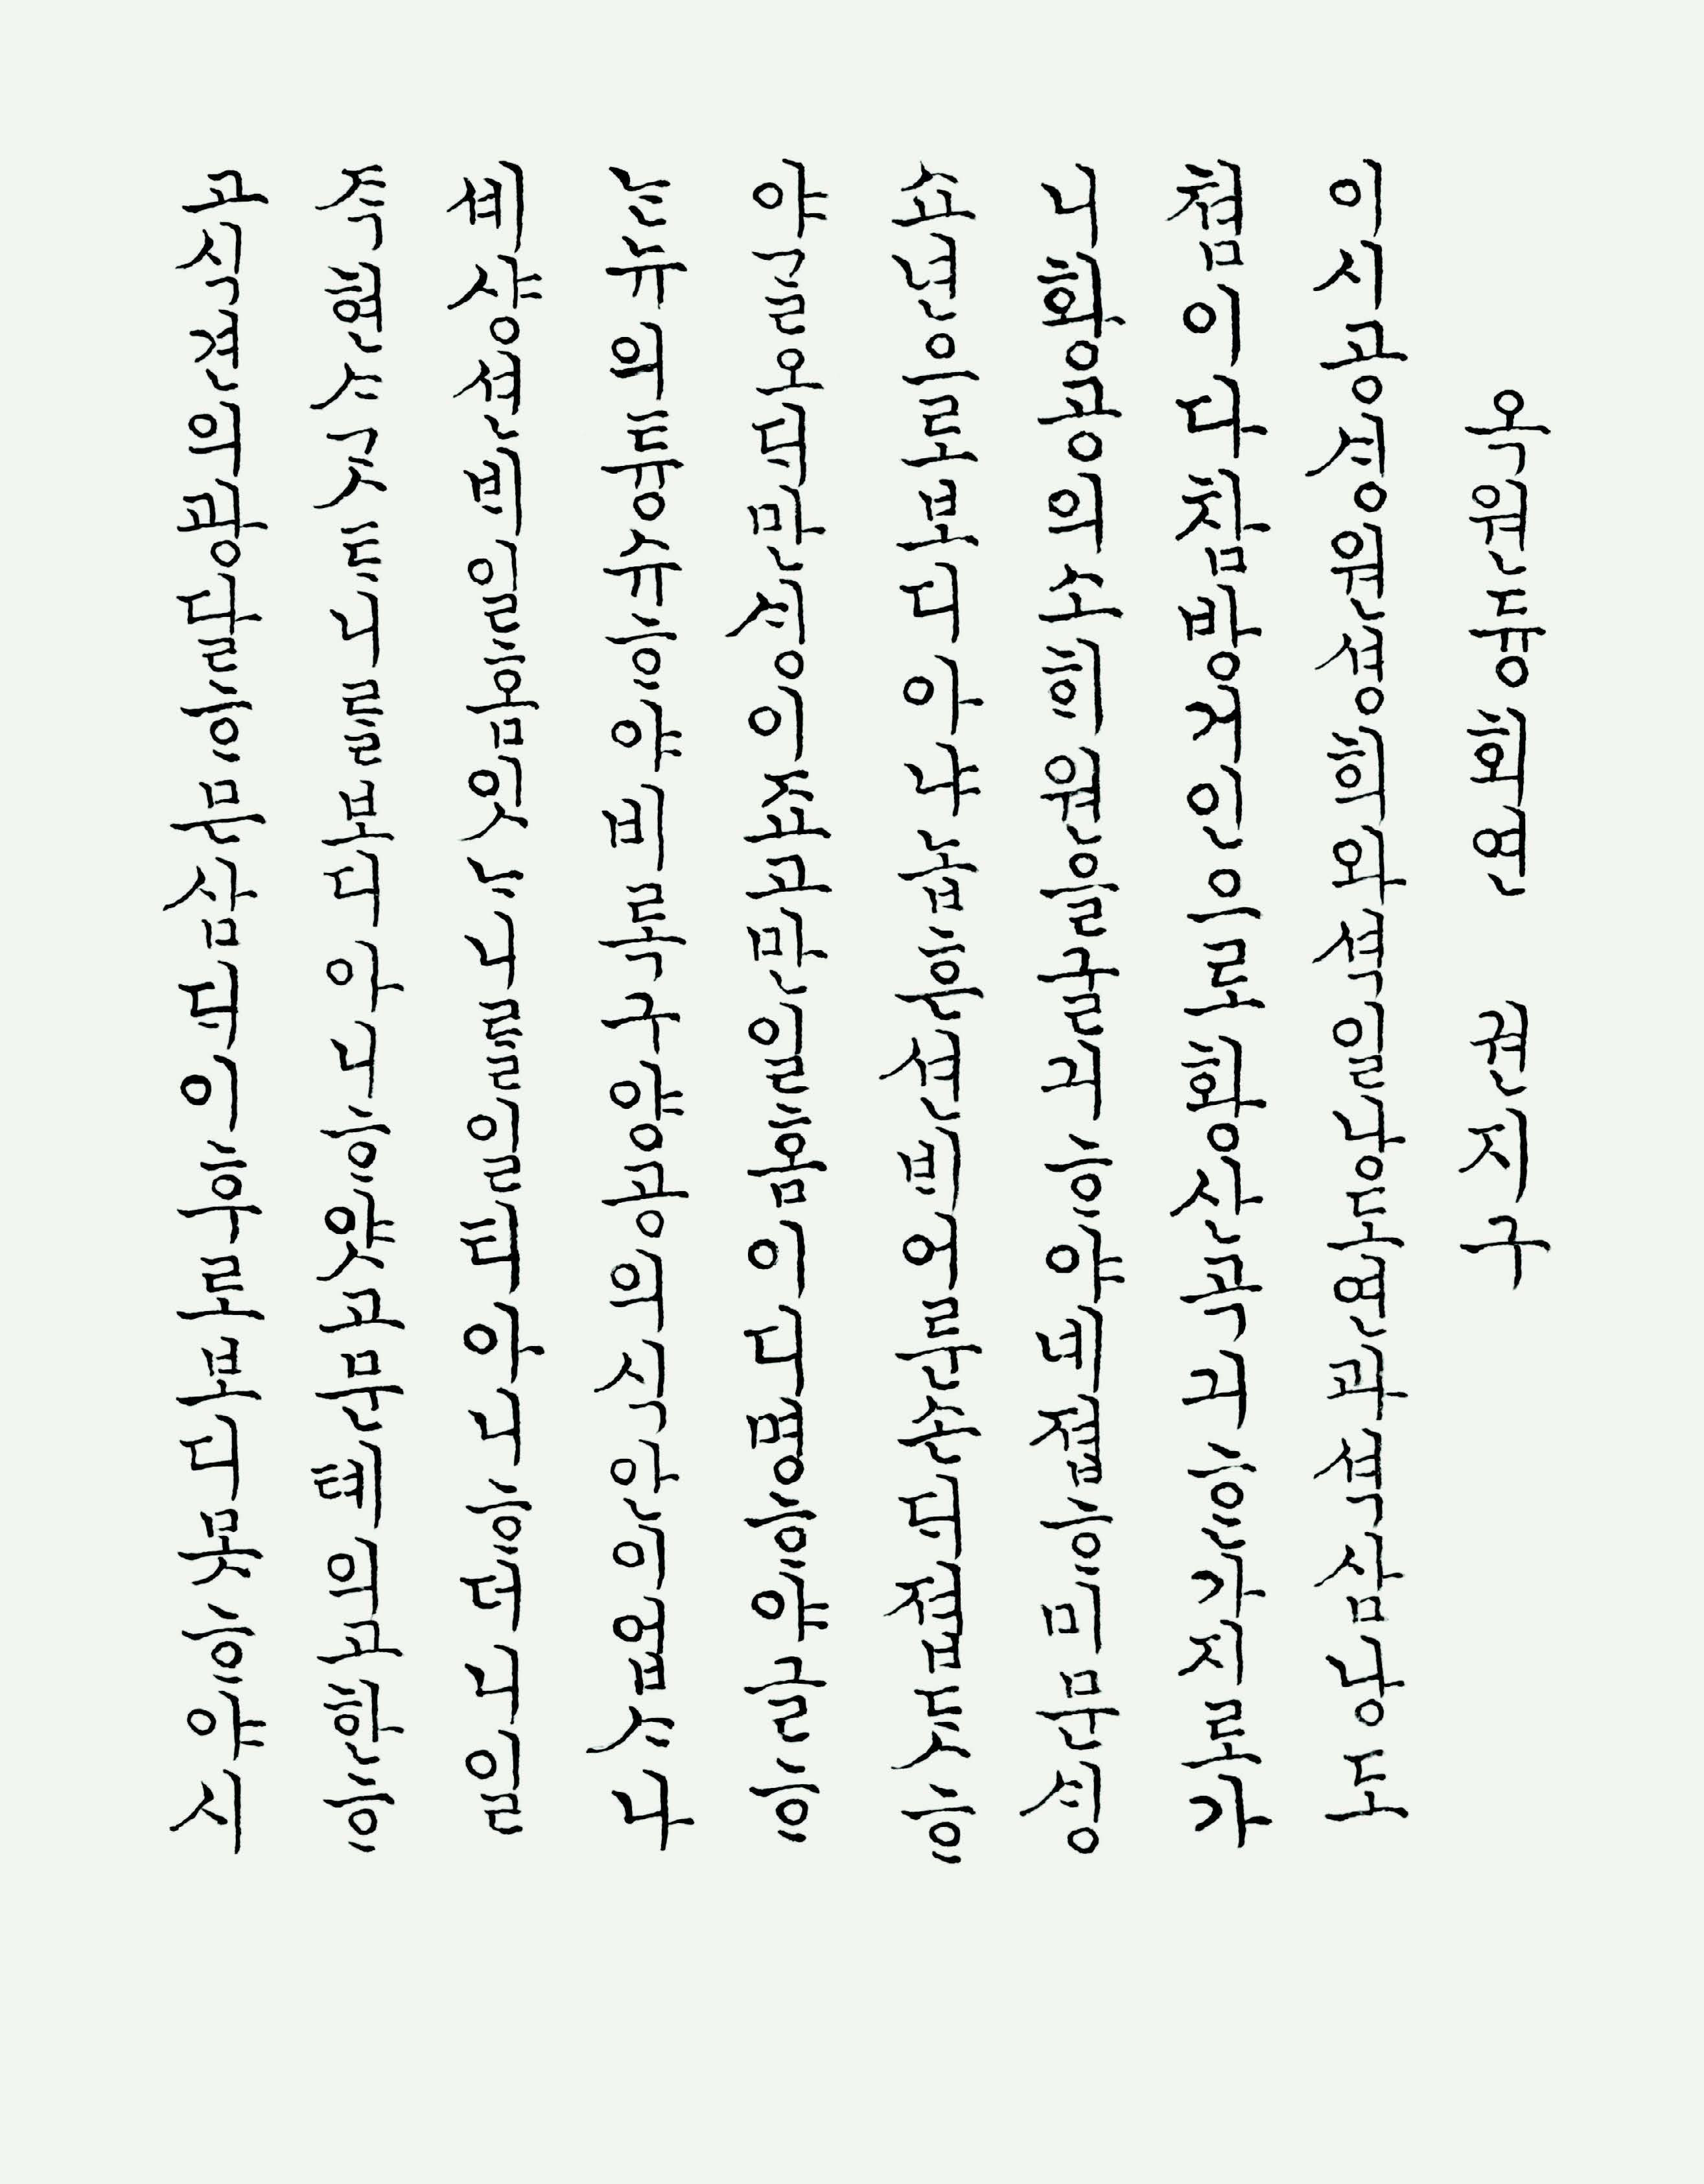 옥원듕회연 권지구
이시공셩원셩ᄒᆡ와셕일낭도연과셕삼낭도
쳠이다참방거인으로황산곡긔ᄒᆞᆫ가지로가
니황공의소ᄒᆡ원을굴긔ᄒᆞ야녜졉ᄒᆞ미문ᄉᆡᆼ
쇼년으로보디아냐놉흔션ᄇᆡ어룬손ᄃᆡ졉ᄃᆞᆺᄒᆞ
야ᄀᆞᆯ오ᄃᆡ만ᄉᆡᆼ이죠고만일홈이디명ᄒᆞ야글ᄒᆞ
ᄂᆞᆫ뉴의듕슈ᄒᆞ야비록구양공의식안이업ᄉᆞ나
셰샹션ᄇᆡ일홈잇ᄂᆞ니ᄅᆞᆯ일ᄐᆡ아니ᄒᆞ더니일
즉현ᄉᆞᄀᆞᆺᄐᆞ니ᄅᆞᆯ보디아니ᄒᆞ얏고문톄의고한ᄒᆞ
고식견의광달ᄒᆞ믄삼ᄃᆡ이후로보디못ᄒᆞ야시